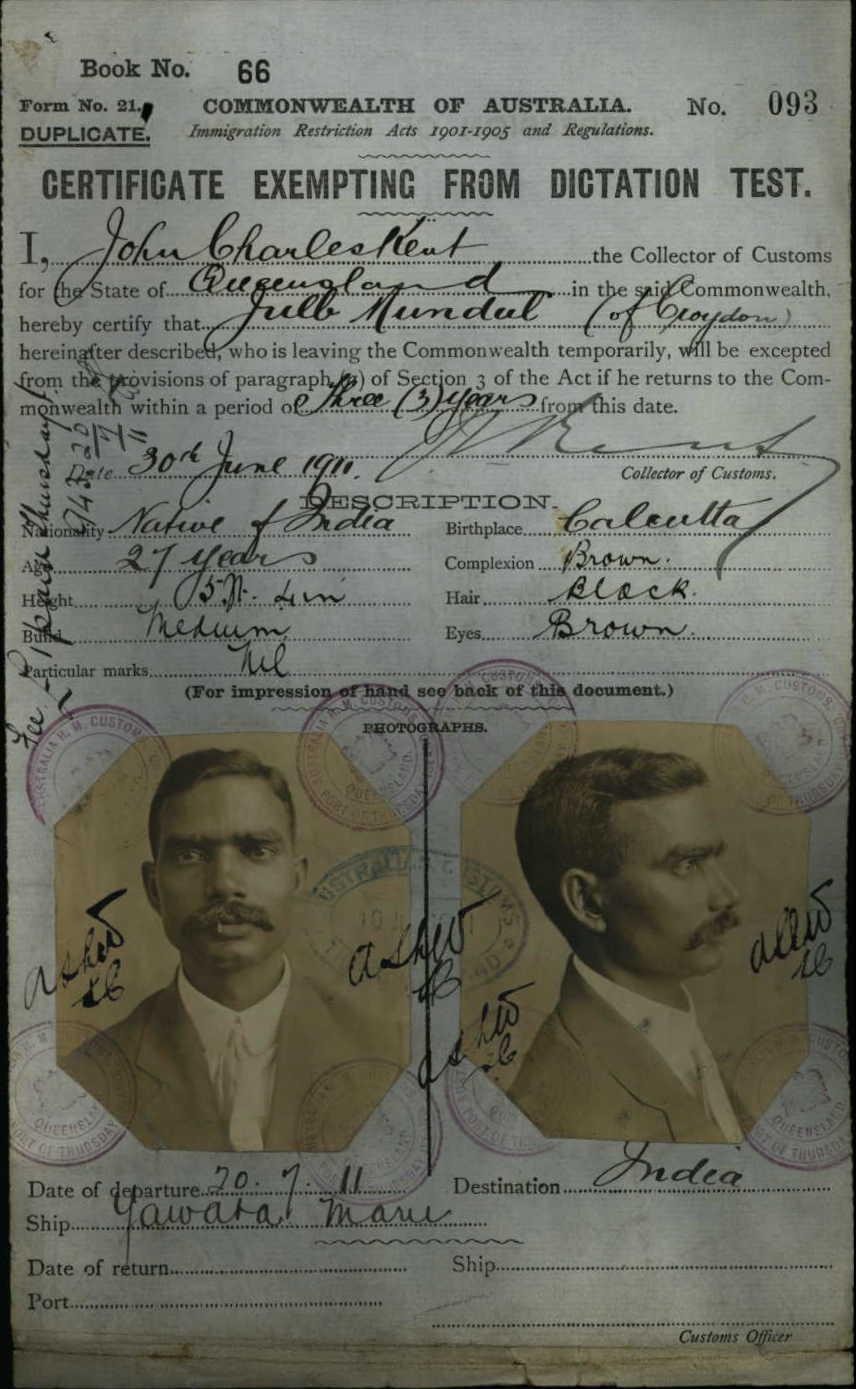 Book No. 66
Form No. 21.
COMMONWEALTH OF AUSTRALIA.
No. 093
DUPLICATE.
Immigration Restriction Acts 1901-1905 and Regulations.
CERTIFICATE EXEMPTING FROM DICTATION TEST.
I, John Charles Kent the Collector of Customs
for the State of Queensland in the said Commonwealth,
hereby certify that (of Croydon)
hereinafter described, who is leaving the Commonwealth temporarily, will be excepted
from the provisions of paragraph (a) of Section 3 of the Act if he returns to the Com-
monwealth within a period of three (3) years from this date.
Date 30th June 1911.
Collector of Customs.
DESCRIPTION.
Nationality Native of India
Birthplace Calcutta
Age 27 years
Complexion Brown.
Height 5 ft. 4 in
Hair Black.
Build Medium
Eyes Brown.
Particular marks Nil
(For impression of hand see back of this document.)
PHOTOGRAPHS.
Date of departure 20. 7. 11
Destination India
Ship Yawata Maru
Date of return
Ship
Port
Customs Officer